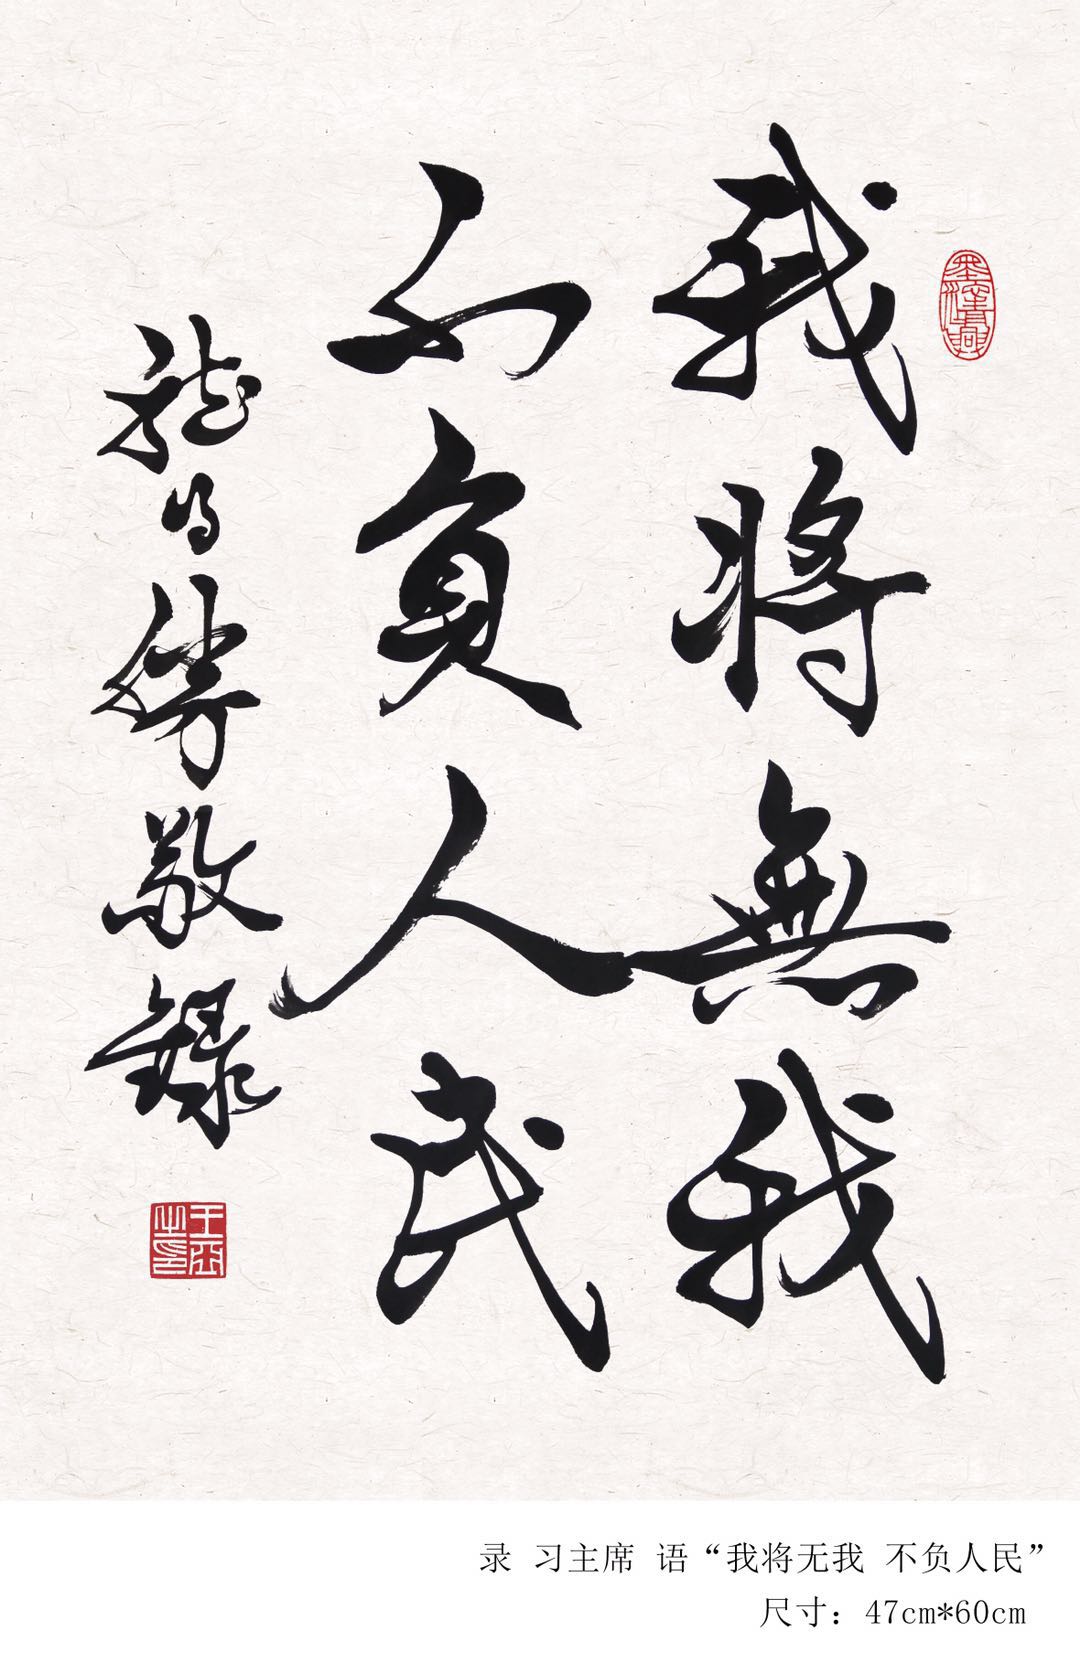 我将無我
不負人民
敬录
录 习主席 语“我将无我 不负人民”
尺寸：47cm*60cm